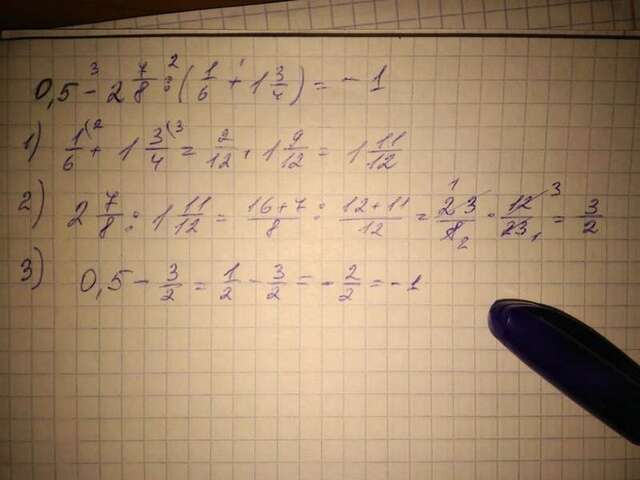 0,5 - 2 7/8 : (1/6 + 1 3/4) = - 1
1) 1/6 + 1 3/4 = 2/12 + 1 9/12 = 1 11/12
2) 2 7/8 : 1 11/12 = 16+7/8 : 12+11/12 = 23/8 · 12/23 = 3/2
3) 0,5 - 3/2 = 1/2 - 3/2 = - 2/2 = - 1